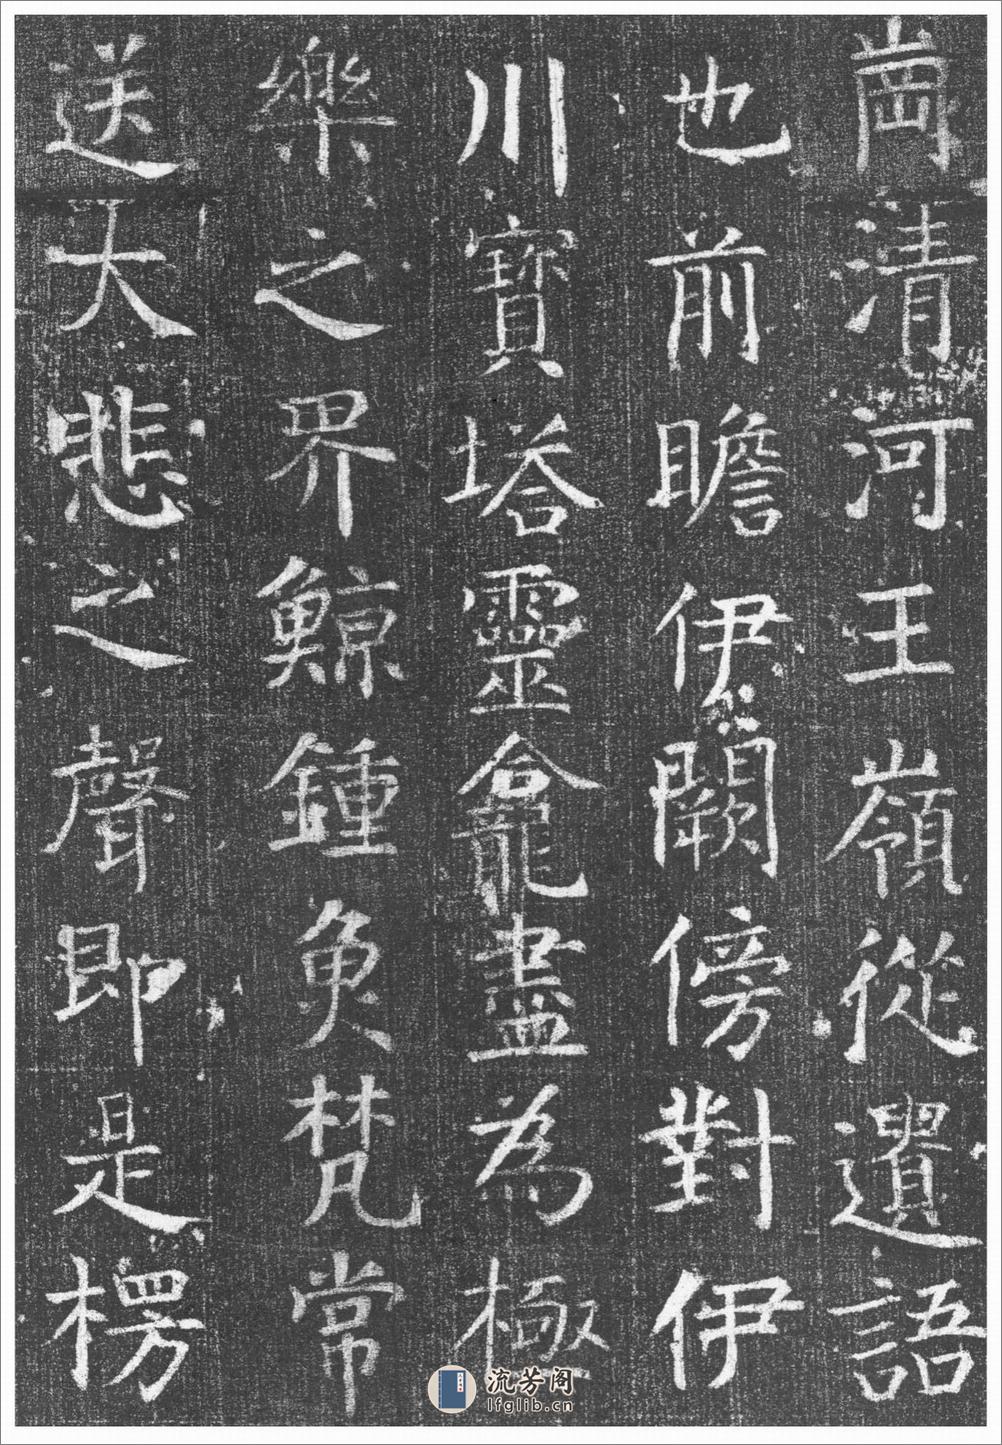 崗清河王嶺從遺語
也前瞻伊闕傍對伊
川寶塔靈龕盡為極
樂之界鯨鍾奐梵常
送大悲之聲即是楞
流芳阁
lfglib.cn